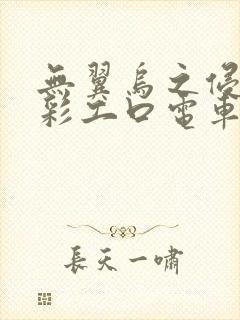 無翼鳥之侵
彩工口電車
長天一嘯